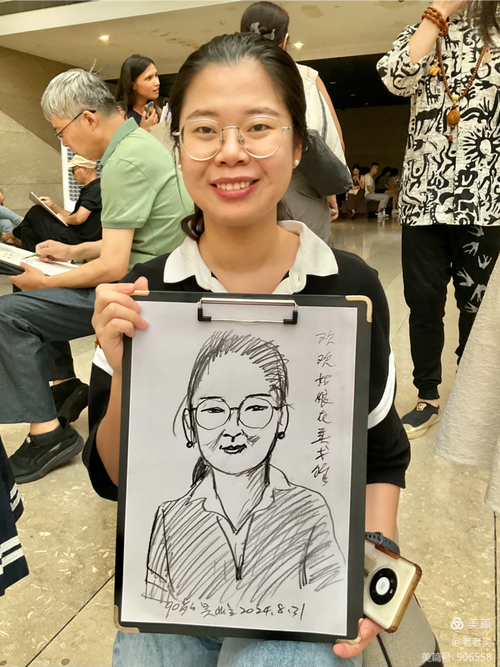 欢欢姑娘在美术馆
90岁 吴山 2024.8.31
美篇
@老老吴
美篇号: 906558